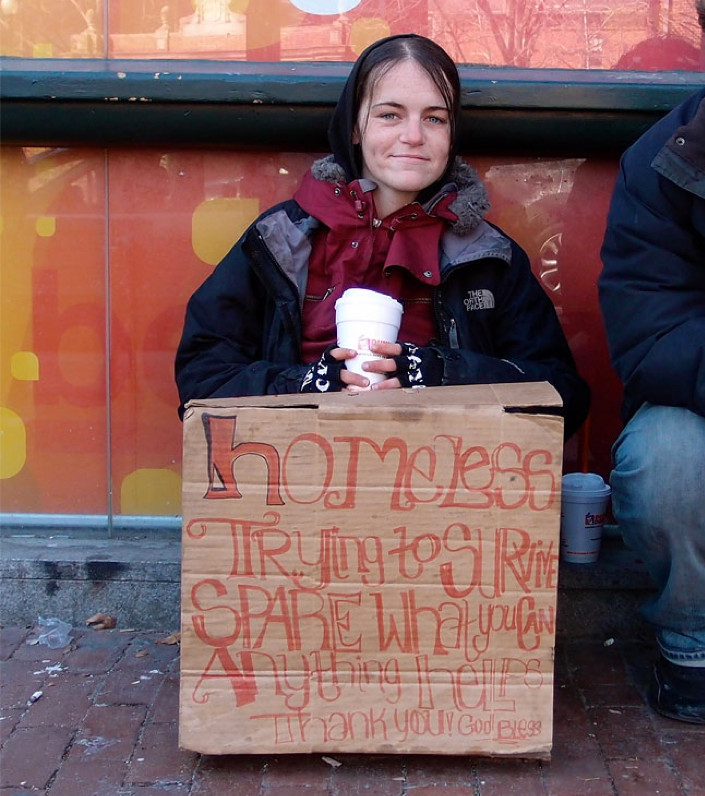 THE
NORTH
FACE
homeless
Trying to SURVIVE
SPARE What you CAN
Anything HELPS
Thank you! God Bless